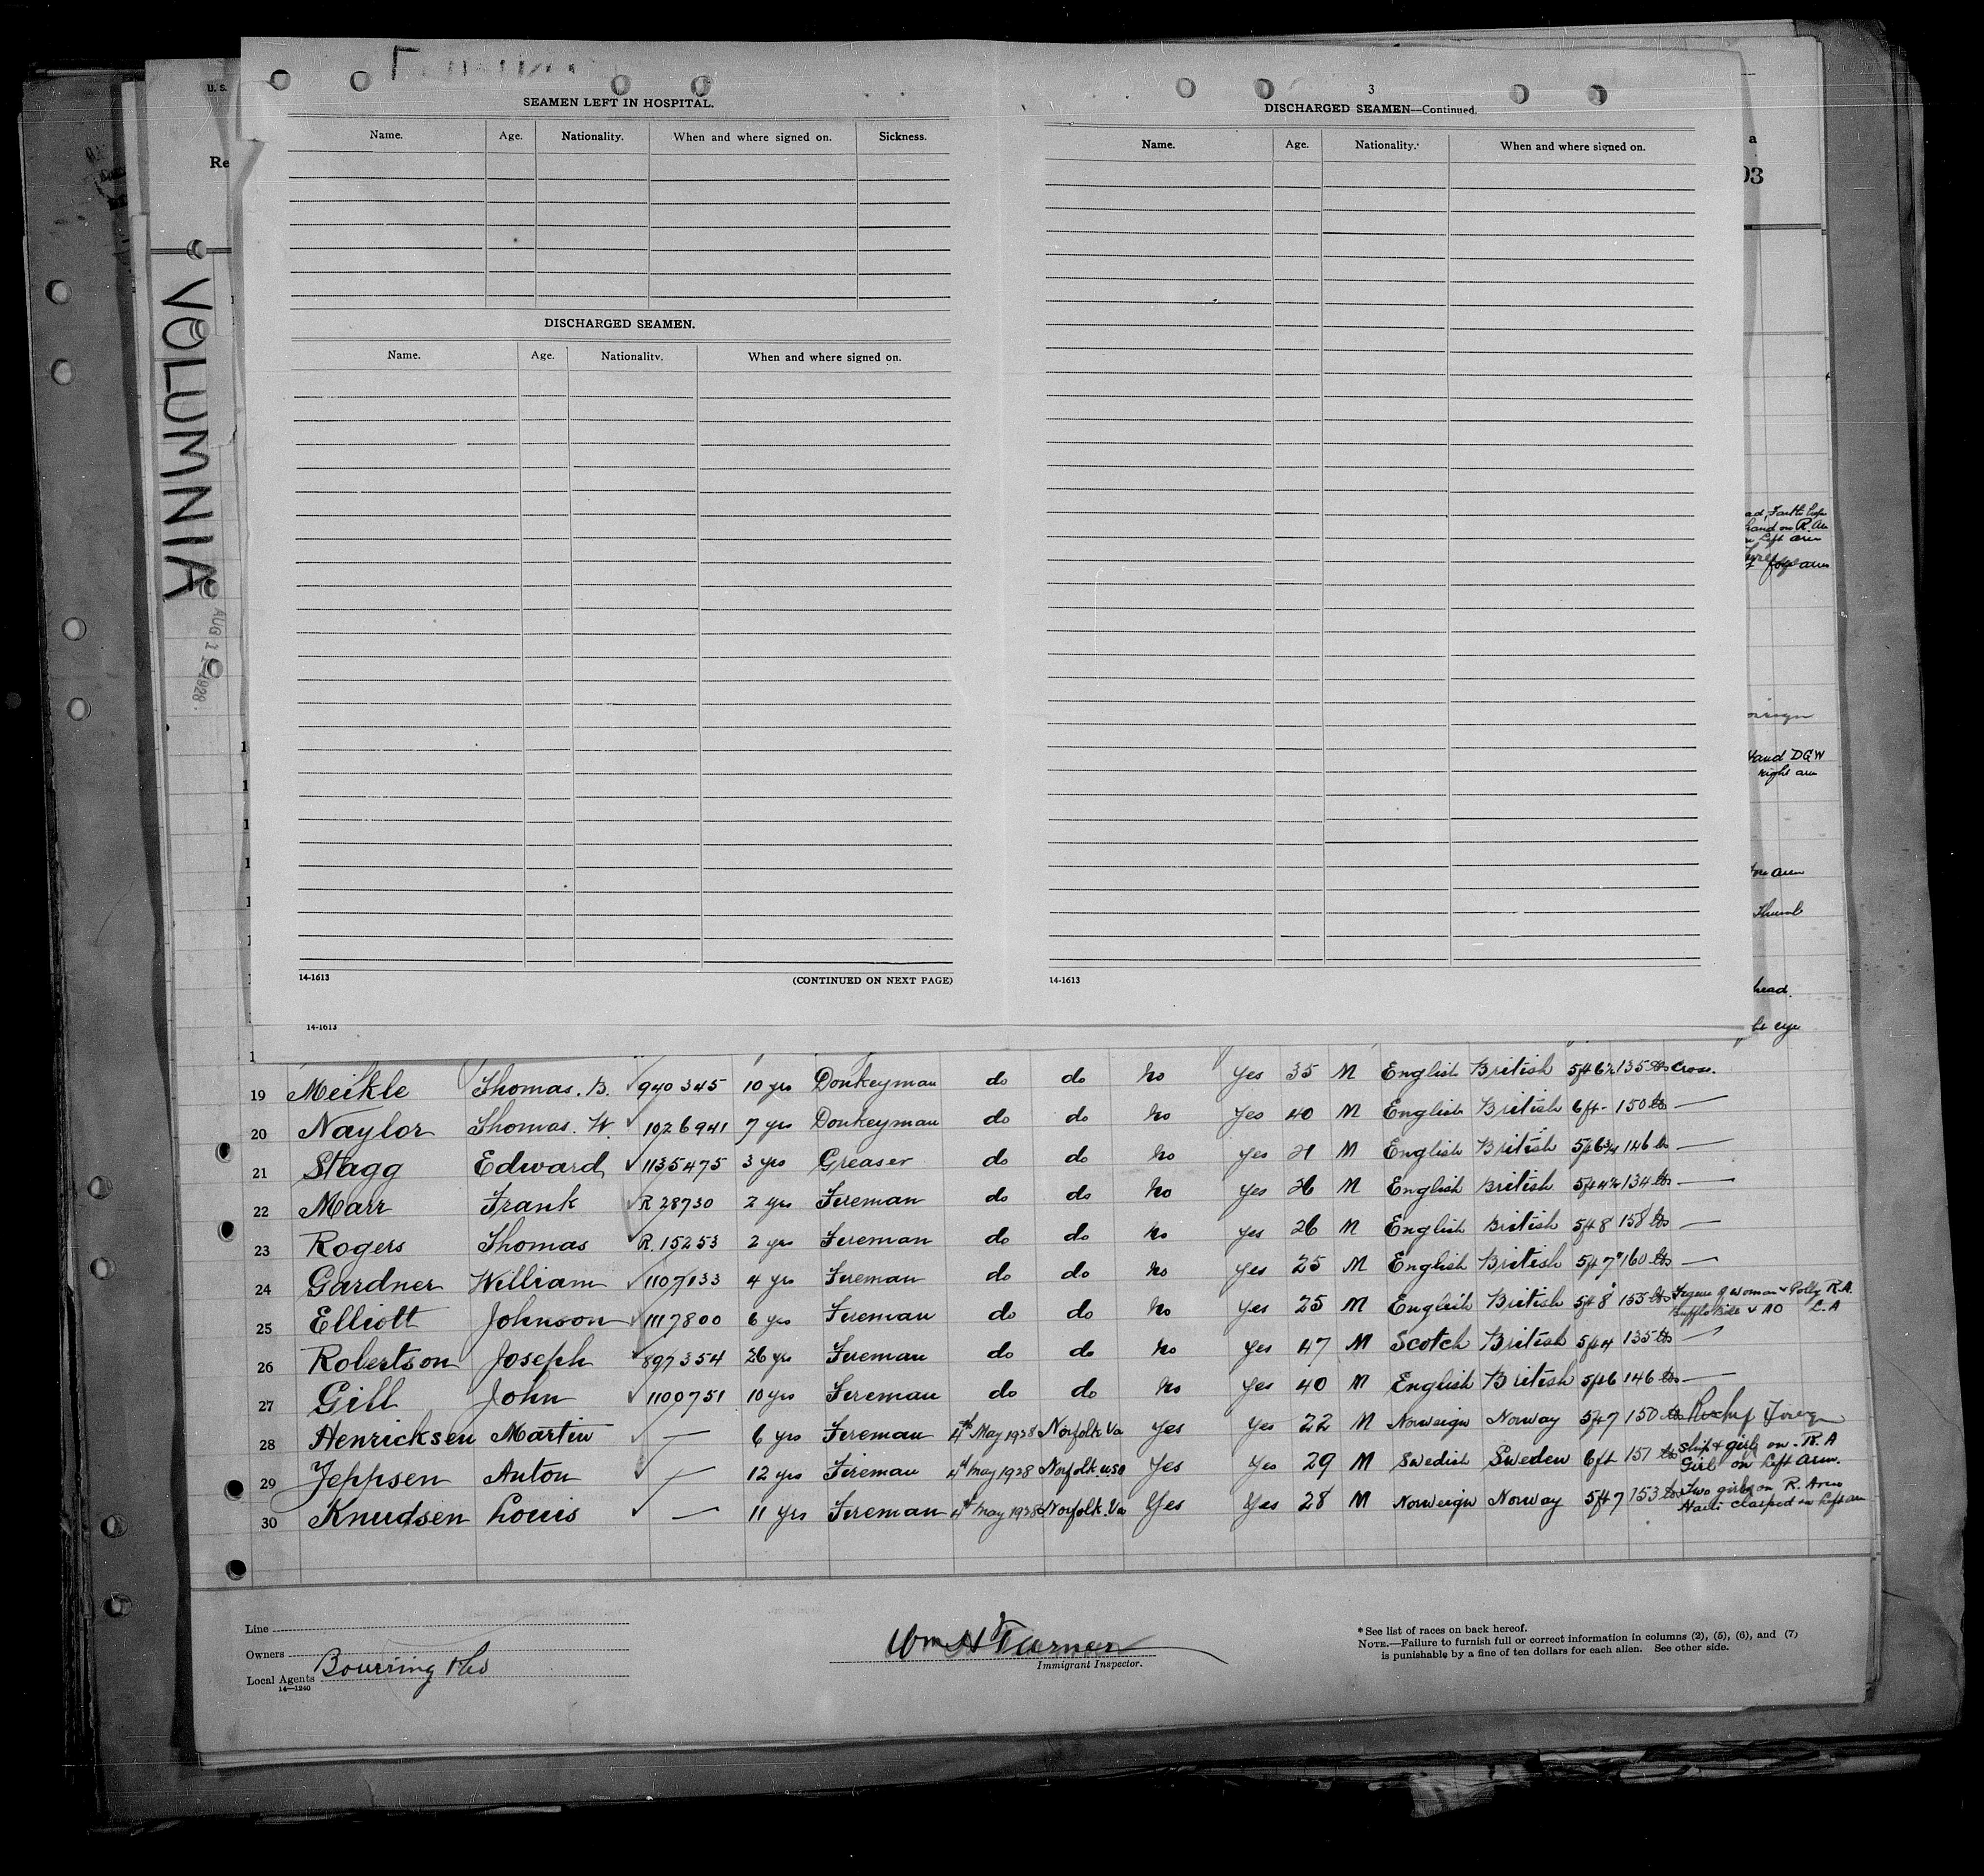 U. S.
Re
VOLUMNIA
AUG 11 1928.
SEAMEN LEFT IN HOSPITAL.
Name. Age. Nationality. When and where signed on. Sickness.
DISCHARGED SEAMEN.
Name. Age. Nationality. When and where signed on.
14-1613 (CONTINUED ON NEXT PAGE)
14-1613
3
DISCHARGED SEAMEN—Continued.
Name. Age. Nationality. When and where signed on.
14-1613
a
93
hand on R. Arm
Left arm
arm
hand DGW
right arm
arm
Thumb
head.
eye
19 Meikle Thomas. B. 940345 10 yrs Donkeyman do do No Yes 35 M English British 5ft 6½ 135 lbs Cross.
20 Naylor Thomas. W. 1026941 7 yrs Donkeyman do do No Yes 40 M English British 6ft - 150 lbs —
21 Stagg Edward 1135475 3 yrs Greaser do do No Yes 21 M English British 5ft 6¾ 146 lbs —
22 Marr Frank R 28730 2 yrs Fireman do do No Yes 26 M English British 5ft 4½ 134 lbs —
23 Rogers Thomas R. 15253 2 yrs Fireman do do No Yes 26 M English British 5ft 8 158 lbs —
24 Gardner William 1107133 4 yrs Fireman do do No Yes 25 M English British 5ft 7" 160 lbs —
25 Elliott Johnson 1117800 6 yrs Fireman do do No Yes 25 M English British 5ft 8 155 lbs Figure of woman & Polly R.A.
L.A
26 Robertson Joseph 897354 26 yrs Fireman do do No Yes 47 M Scotch British 5ft 4 135 lbs —
27 Gill John 1100751 10 yrs Fireman do do No Yes 40 M English British 5ft 6 146 lbs —
28 Henricksen Martin — 6 yrs Fireman 4th May 1928 Norfolk Va Yes Yes 22 M Norweign Norway 5ft 7 150 lbs
29 Jeppsen Anton — 12 yrs Fireman 4th May 1928 Norfolk USA Yes Yes 29 M Swedish Sweden 6ft 151 lbs Ship & girl on R. A
Girl on Left Arm.
30 Knudsen Louis — 11 yrs Fireman 4th May 1928 Norfolk. Va Yes Yes 28 M Norweign Norway 5ft 7 153 lbs Two girls on R. Arm
clasped on Left arm
Line
Owners
Local Agents Bowring & Co
14—1240
Wm H Turner
Immigrant Inspector.
* See list of races on back hereof.
NOTE.—Failure to furnish full or correct information in columns (2), (5), (6), and (7)
is punishable by a fine of ten dollars for each alien. See other side.